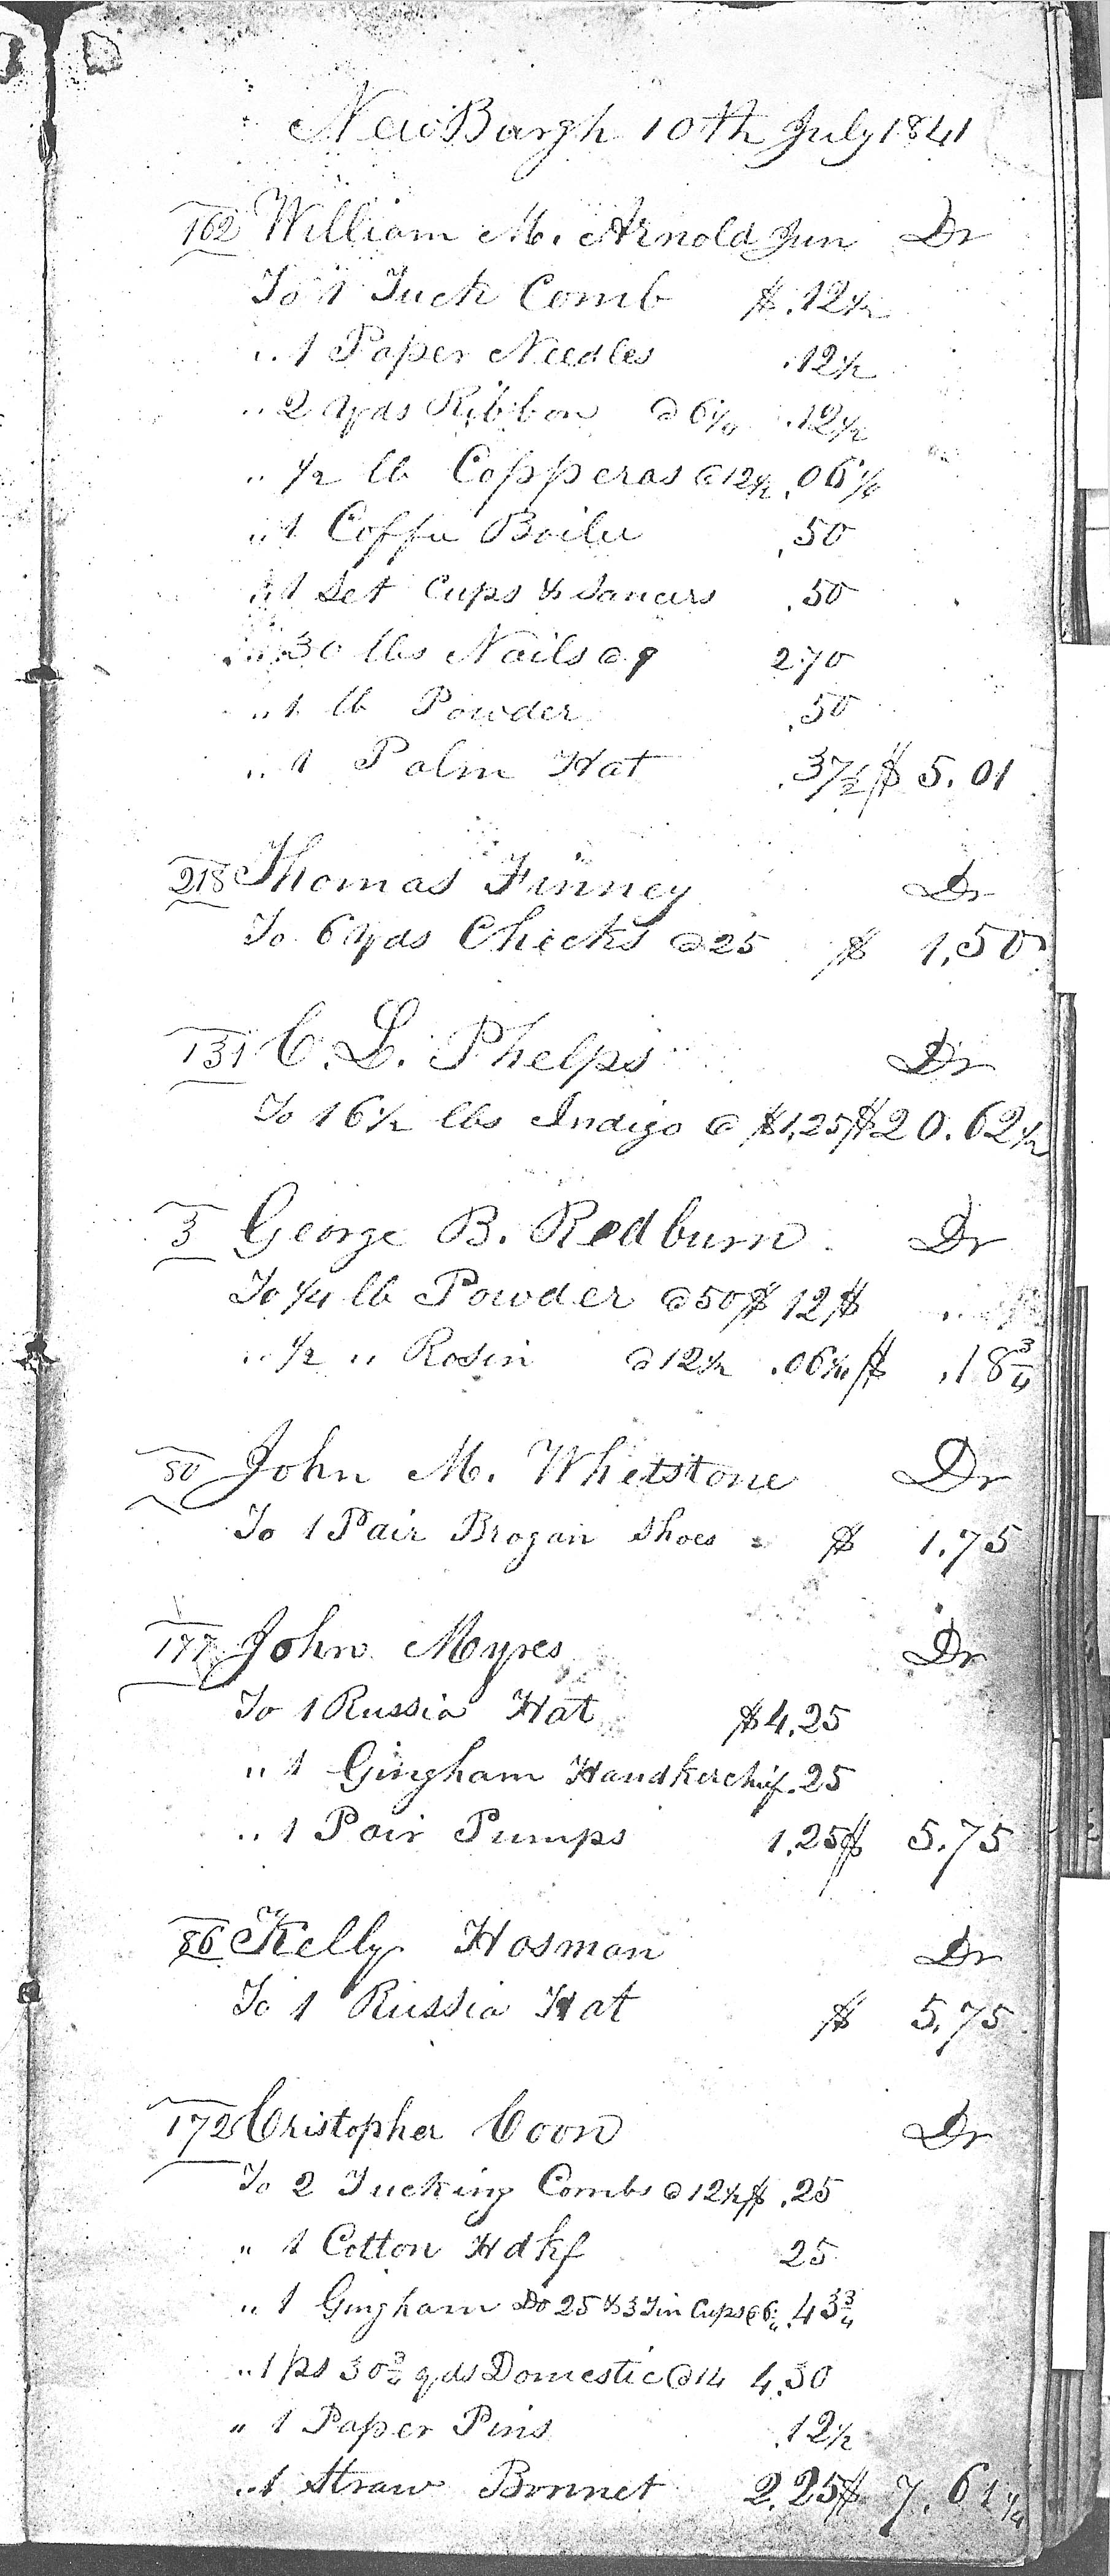 NewBurgh 10th July 1841
162 William M. Arnold Jun Dr
To 1 Tuck Comb $ .12½
" 1 Paper Needles .12½
" 2 Yds Ribbon @ 6¼ .12½
" ½ lb Copperas @ 12½ .06¼
" 1 Coffee Boiler .50
" 1 Set Cups & Saucers .50
" 30 lbs Nails @ 9 2.70
" 1 lb Powder .50
" 1 Palm Hat .37½ $ 5.01
218 Thomas Finney Dr
To 6 Yds Checks @ 25 $ 1.50
131 C. L. Phelps Dr
To 16½ lbs Indigo @ $1.25 $20.62½
3 George B. Redburn Dr
To ¼ lb Powder @ 50 $ 12 $
" ½ " Rosin @ 12½ .06¼ $ .18¾
50 John M. Whetstone Dr
To 1 Pair Brogan Shoes $ 1.75
177 John Myres Dr
To 1 Russia Hat $4.25
" 1 Gingham Handkerchif .25
" 1 Pair Pumps 1.25 $ 5.75
86 Kelly Hosman Dr
To 1 Russia Hat $ 5.75
172 Cristopher Coon Dr
To 2 Tucking Combs @ 12½ $ .25
" 1 Cotton Hdkf 25
" 1 Gingham Do 25 & 3 Tin Cups @ 6¼ .43¾
" 1 ps 30¾ yds Domestic @ 14 4.30
" 1 Paper Pins .12½
" 1 Straw Bonnet 2.25 $ 7.61¼